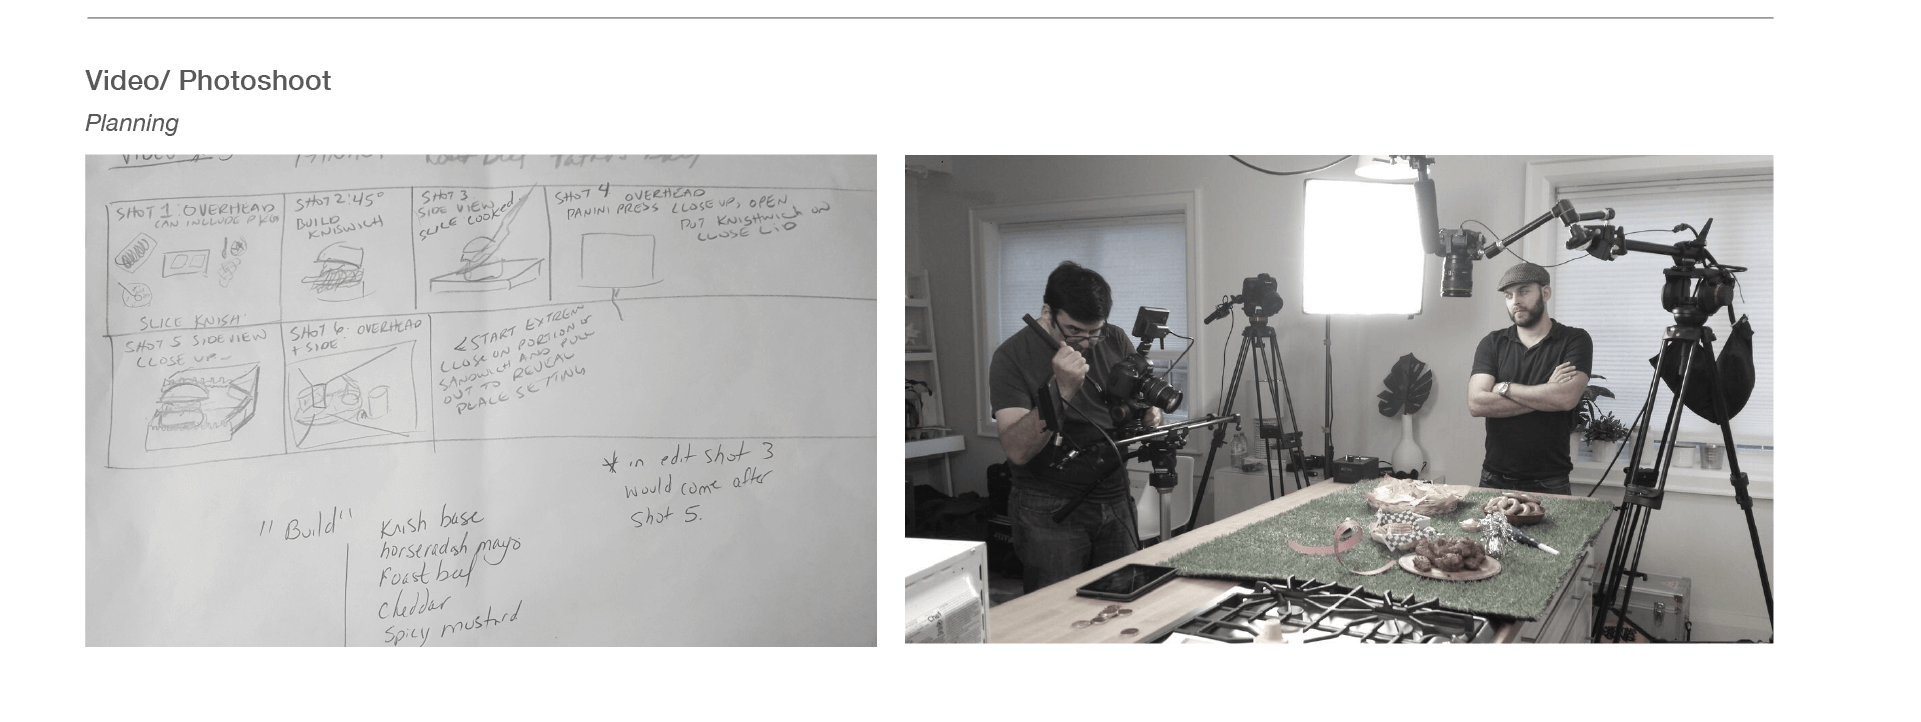 Video/ Photoshoot
Planning
SHOT 1: OVERHEAD
CAN INCLUDE PKG
SLICE KNISH
SHOT 2: 45°
BUILD
KNISWICH
SHOT 3
SIDE VIEW
SLICE COOKED
SHOT 4 OVERHEAD
PANINI PRESS CLOSEUP, OPEN
PUT KNISHWICH ON
CLOSE LID
SHOT 5 SIDEVIEW
CLOSE UP-
SHOT 6: OVERHEAD
+ SIDE
<START EXTREM
CLOSE ON PORTION OF
SANDWICH AND PULL
OUT TO REVEAL
PLACE SETTING
* in edit shot 3
would come after
shot 5.
"Build"
Knish base
horseradish mayo
roast beef
cheddar
spicy mustard